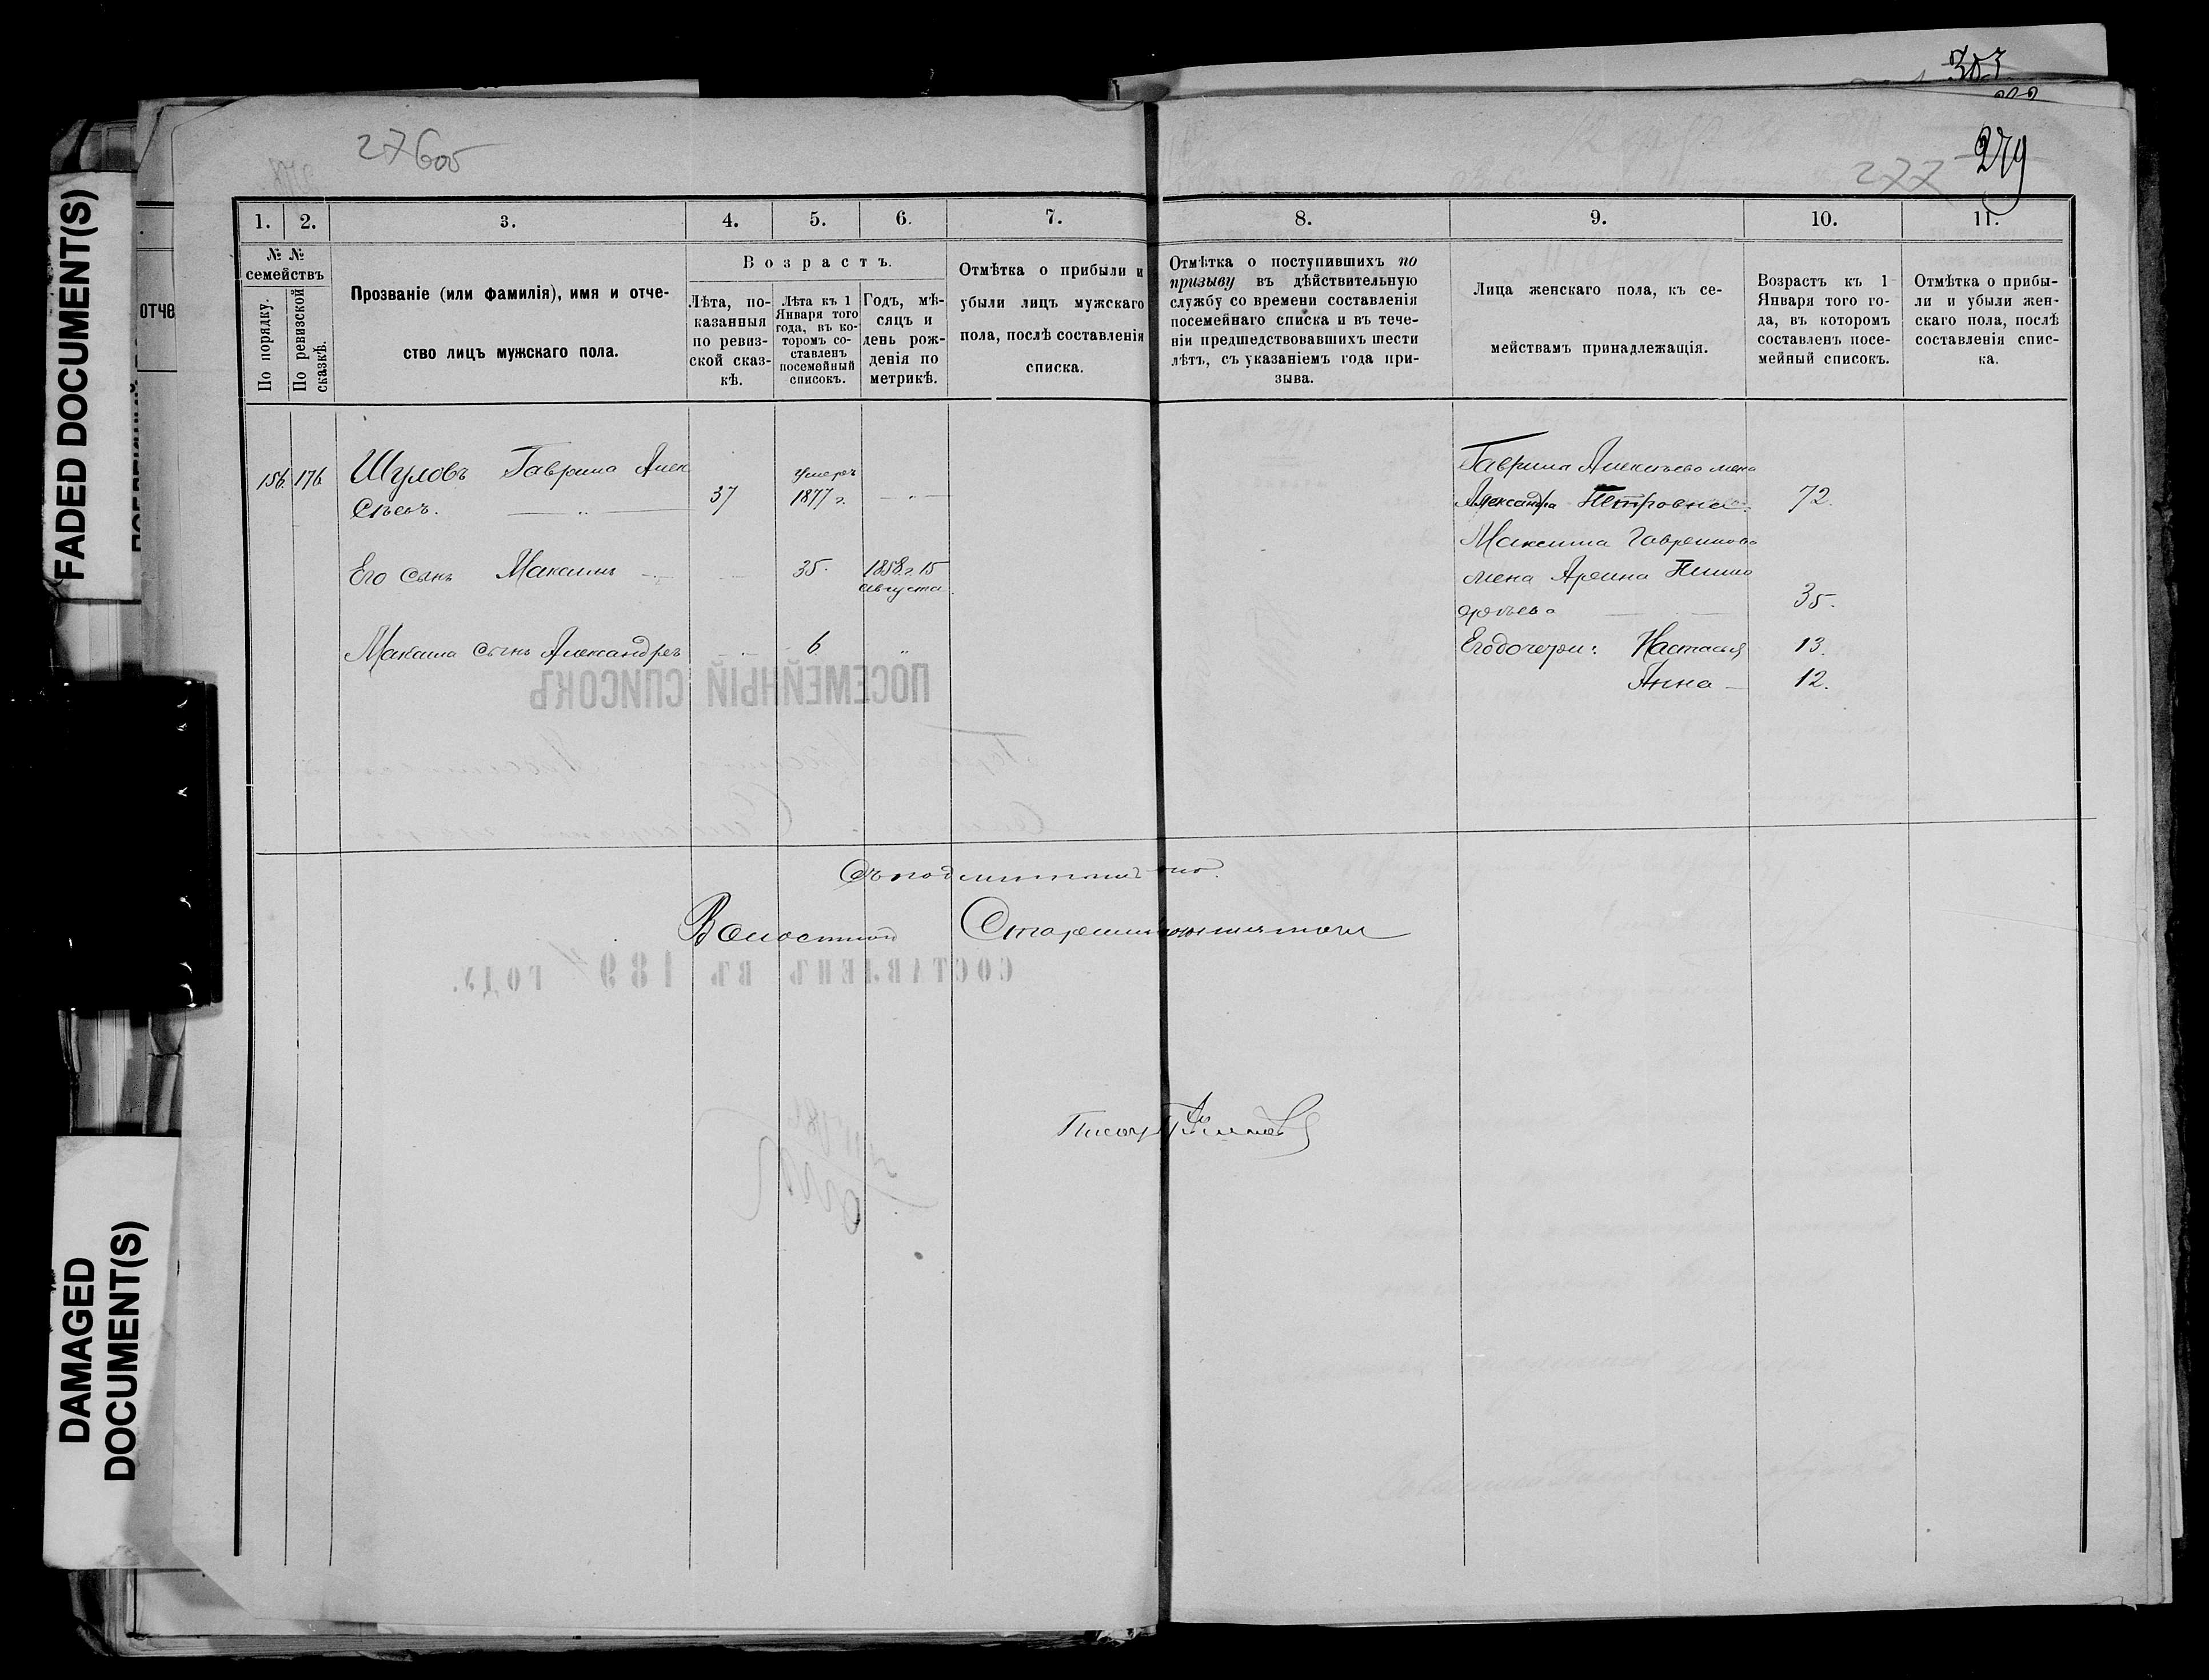 FADED DOCUMENT(S)
DAMAGED
DOCUMENT(S)
отче
303
276об
277
279
1.
2.
3.
4.
5.
6.
7.
8.
9.
10.
11.
№ №
семействъ
По порядку.
По ревизской
сказкѣ.
Прозваніе (или фамилія), имя и отче-
ство лицъ мужскаго пола.
Возрастъ.
Лѣта, по-
казанныя
по ревиз-
ской сказ-
кѣ.
Лѣта къ 1
Января того
года, въ ко-
торомъ со-
ставленъ
посемейный
списокъ.
Годъ, мѣ-
сяцъ и
день рож-
денія по
метрикѣ.
Отмѣтка о прибыли и
убыли лицъ мужскаго
пола, послѣ составленія
списка.
Отмѣтка о поступившихъ по
призыву въ дѣйствительную
службу со времени составленія
посемейнаго списка и въ тече-
ніи предшедствовавшихъ шести
лѣтъ, съ указаніемъ года при-
зыва.
Лица женскаго пола, къ се-
мействамъ принадлежащія.
Возрастъ къ 1
Января того го-
да, въ которомъ
составленъ посе-
мейный списокъ.
Отмѣтка о прибы-
ли и убыли жен-
скаго пола, послѣ
составленія спис-
ка.
156 176 Шуловъ Гаврила Алек
сѣевъ. 37 умеръ 1877 г.
Его сынъ Максимъ 35. 1858 г. 15
августа.
Максима сынъ Александръ 6
Гаврила Алексѣева жена
Александра Петровна. 72.
Максима Гаврилова
жена Арина
35.
Его дочери: Настасья 13.
Анна 12.
ПОСЕМЕЙНЫЙ СПИСОКЪ
Волостной Старшина
СОСТАВЛЕНЪ ВЪ 1894 ГОДУ.
Писарь